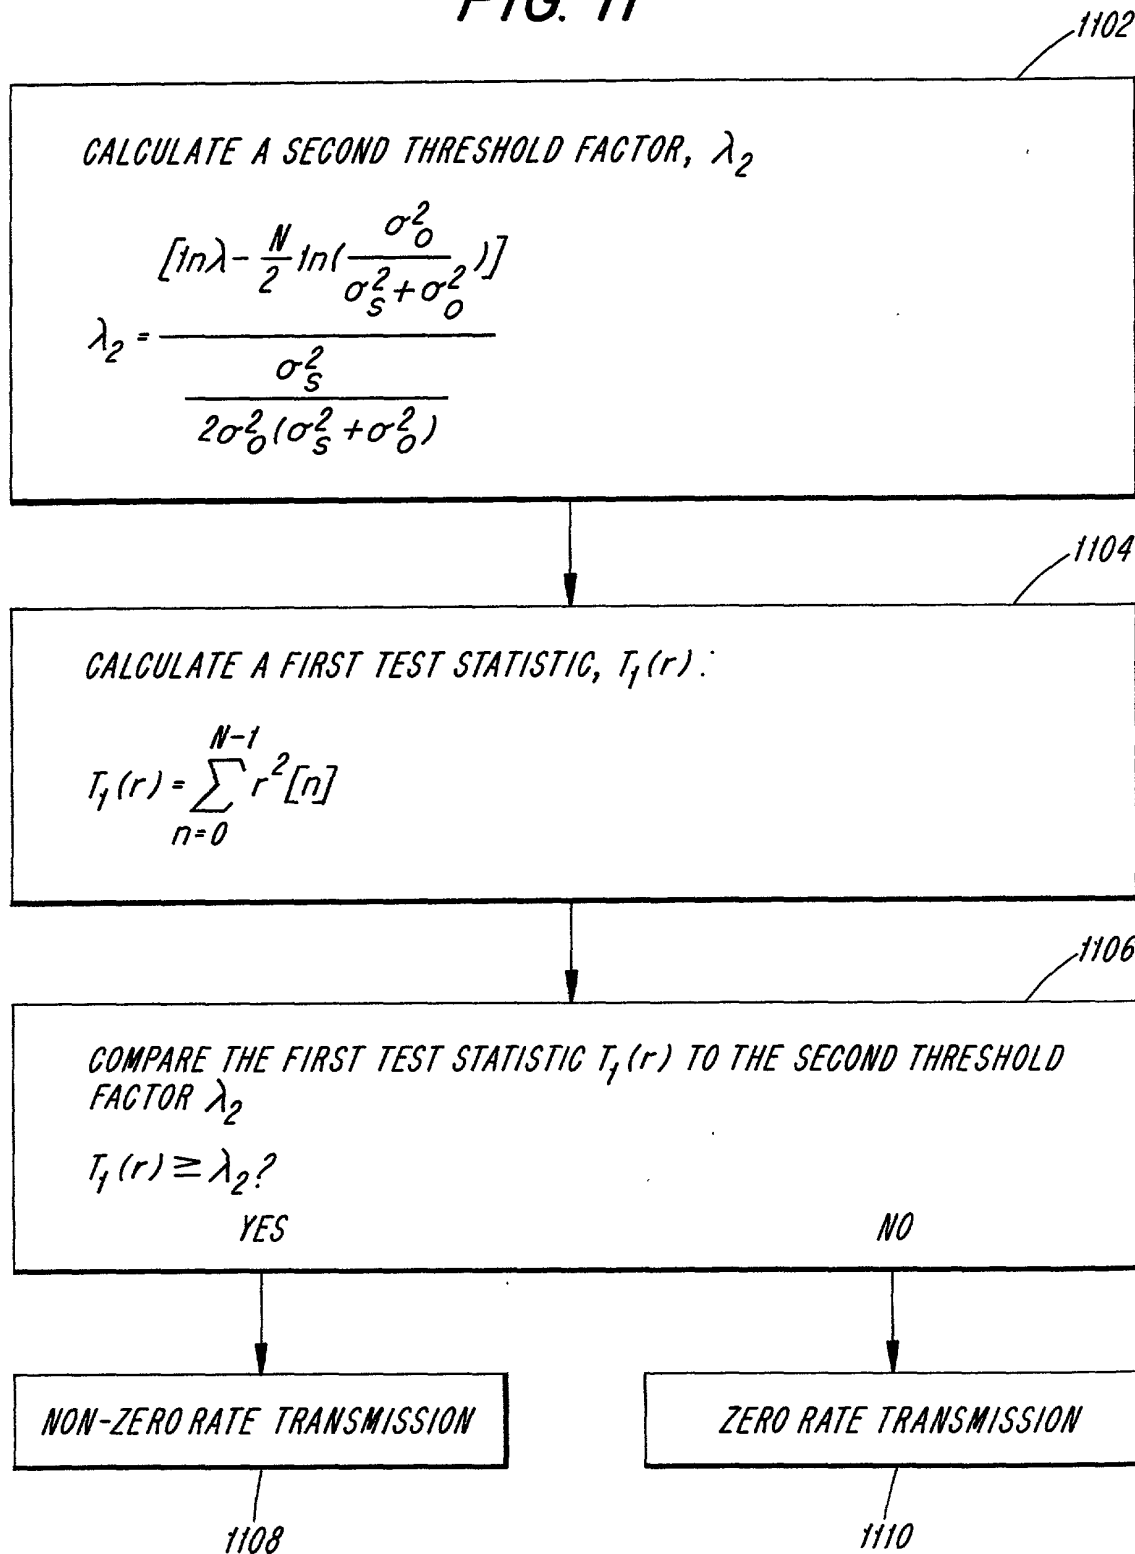 FIG. 11
1102
CALCULATE A SECOND THRESHOLD FACTOR, λ₂
λ₂ = [lnλ - N/2 ln(σ²₀ / (σ²ₛ + σ²₀))] / (σ²ₛ / (2σ²₀(σ²ₛ + σ²₀)))
1104
CALCULATE A FIRST TEST STATISTIC, T₁(r):
T₁(r) = ∑ₙ₌₀ᴺ⁻¹ r²[n]
1106
COMPARE THE FIRST TEST STATISTIC T₁(r) TO THE SECOND THRESHOLD
FACTOR λ₂
T₁(r) ≧ λ₂?
YES NO
NON-ZERO RATE TRANSMISSION ZERO RATE TRANSMISSION
1108 1110